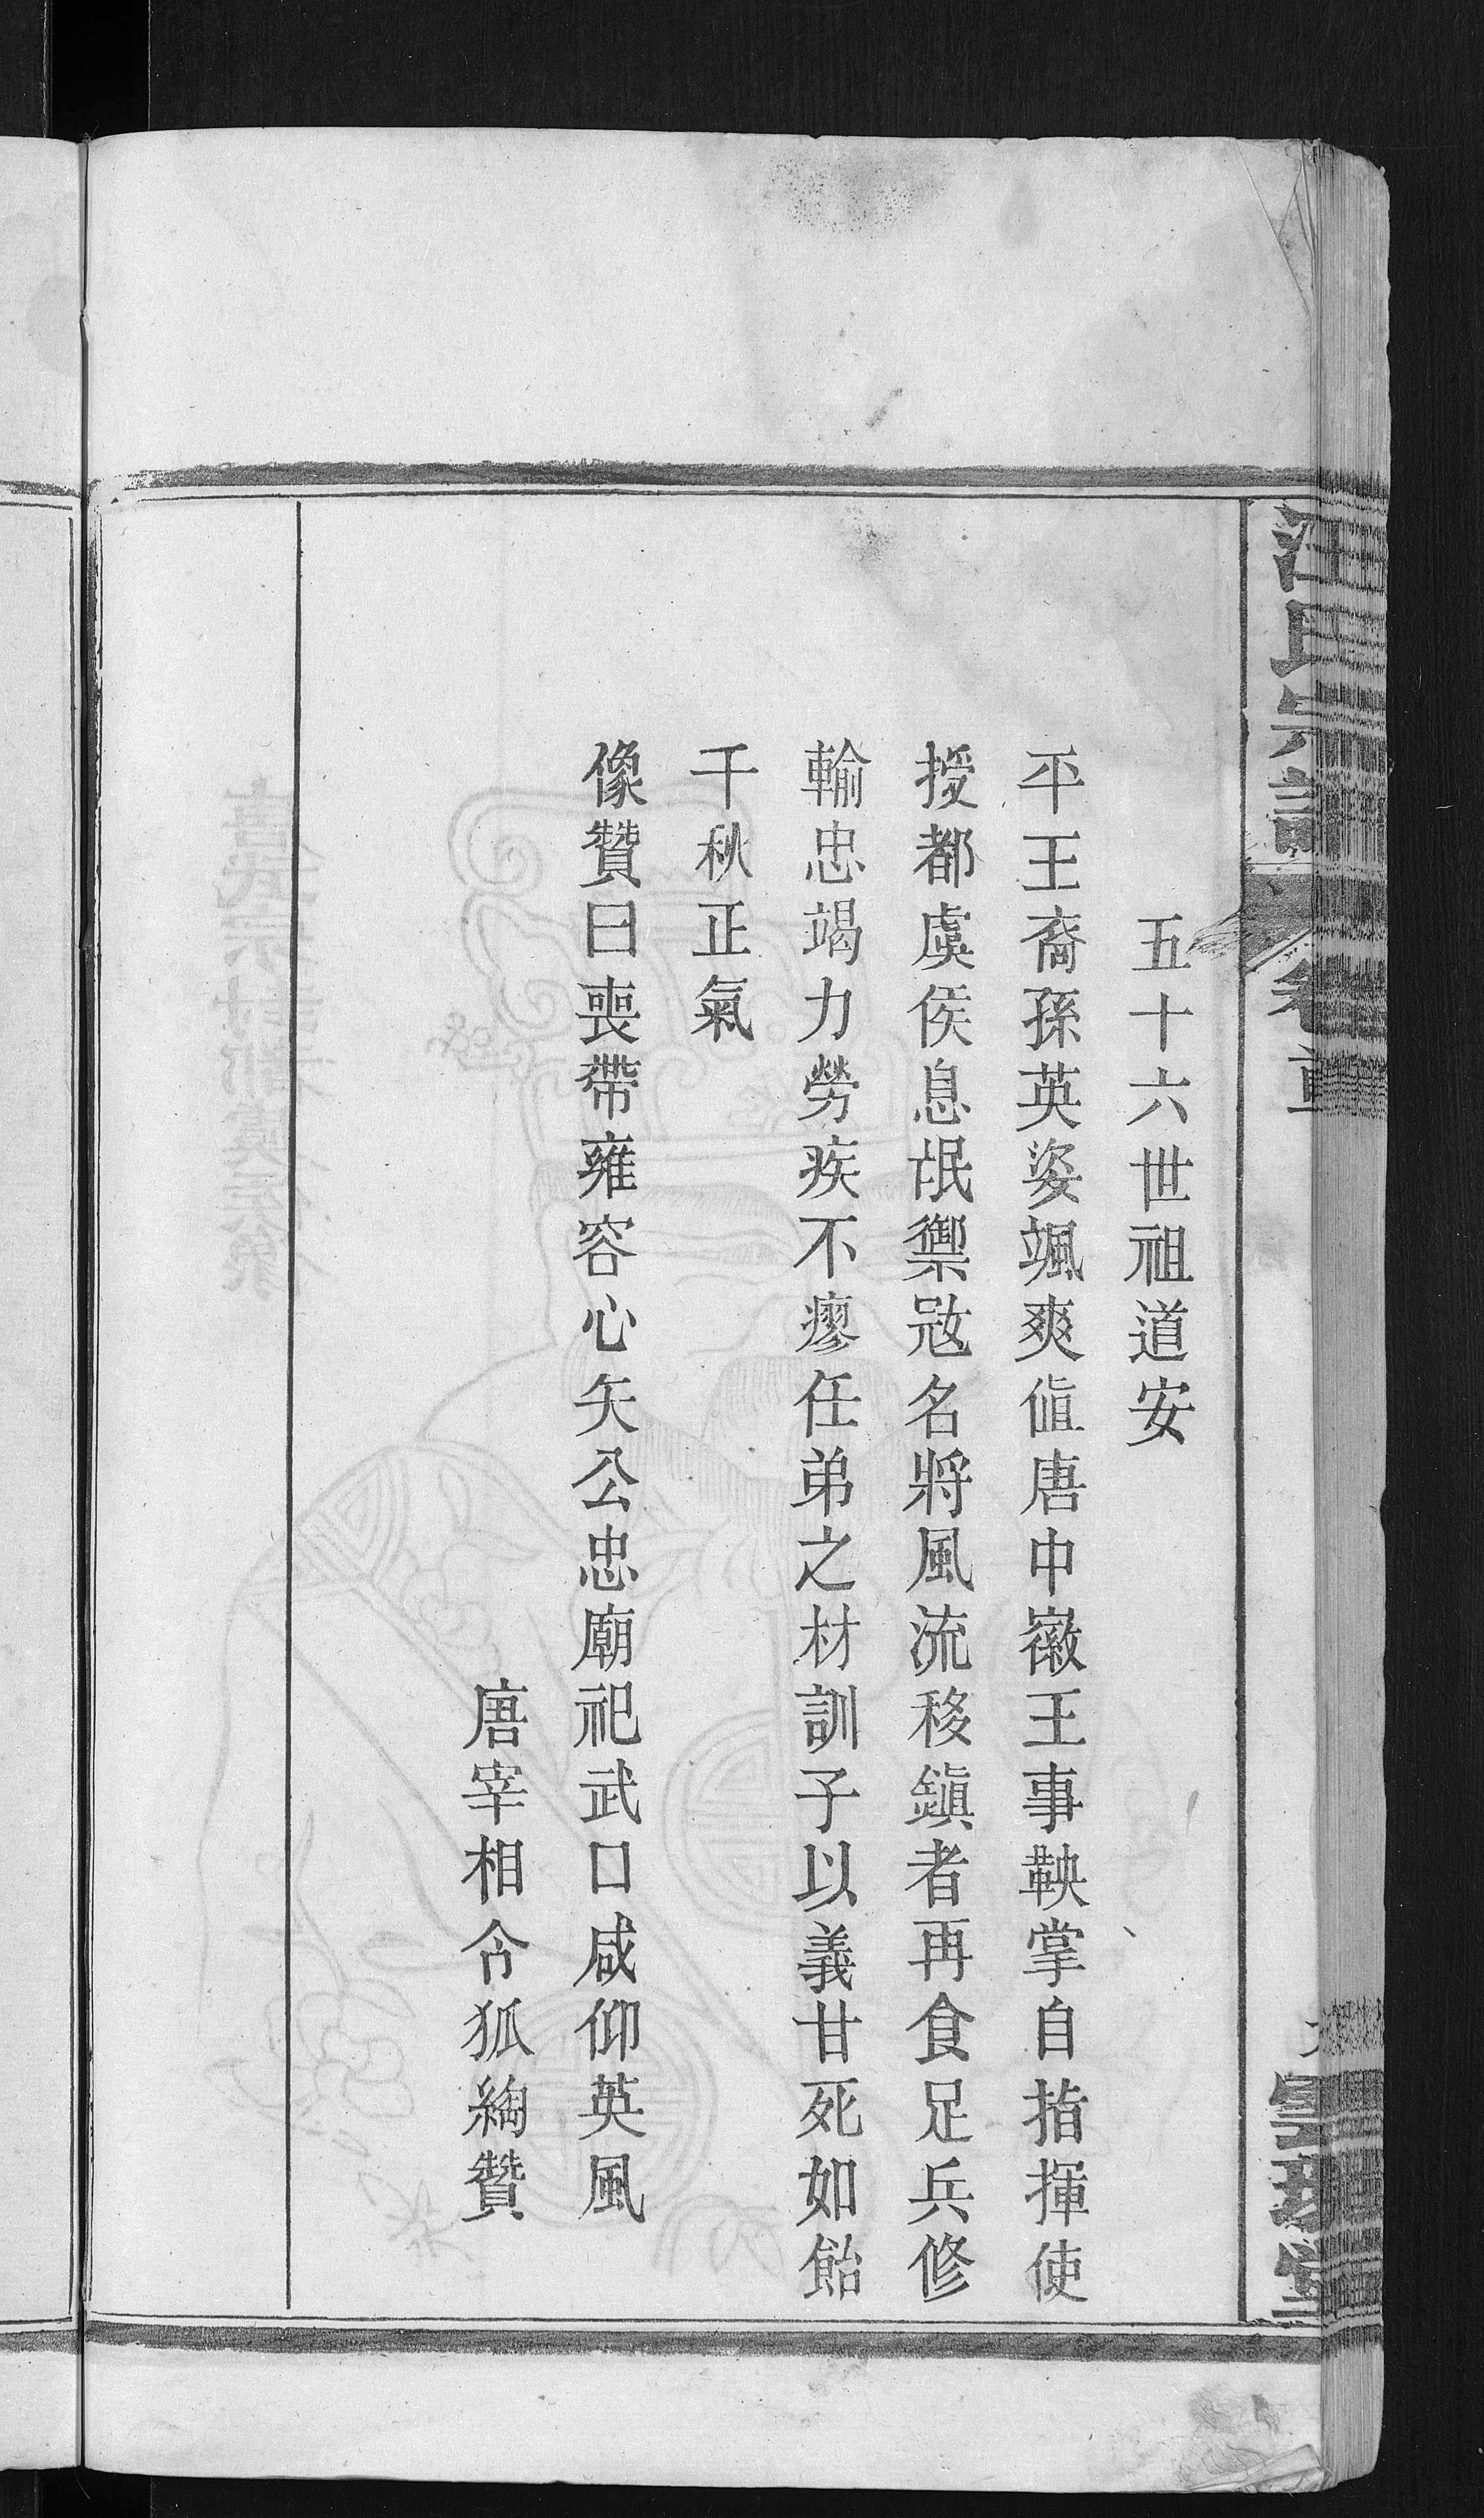 汪氏宗譜
卷首
五十六世祖道安
平王裔孫英姿颯爽値唐中徽王事鞅掌自指揮使
授都虞侯息氓禦寇名將風流移鎮者再食足兵修
輸忠竭力勞疾不瘳任弟之材訓子以義甘死如飴
千秋正氣
像贊曰喪帶雍容心矢公忠廟祀武口咸仰英風
唐宰相令狐綯贊